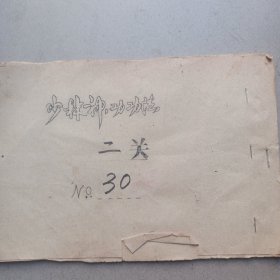 少林神功功法
二关
№ 30